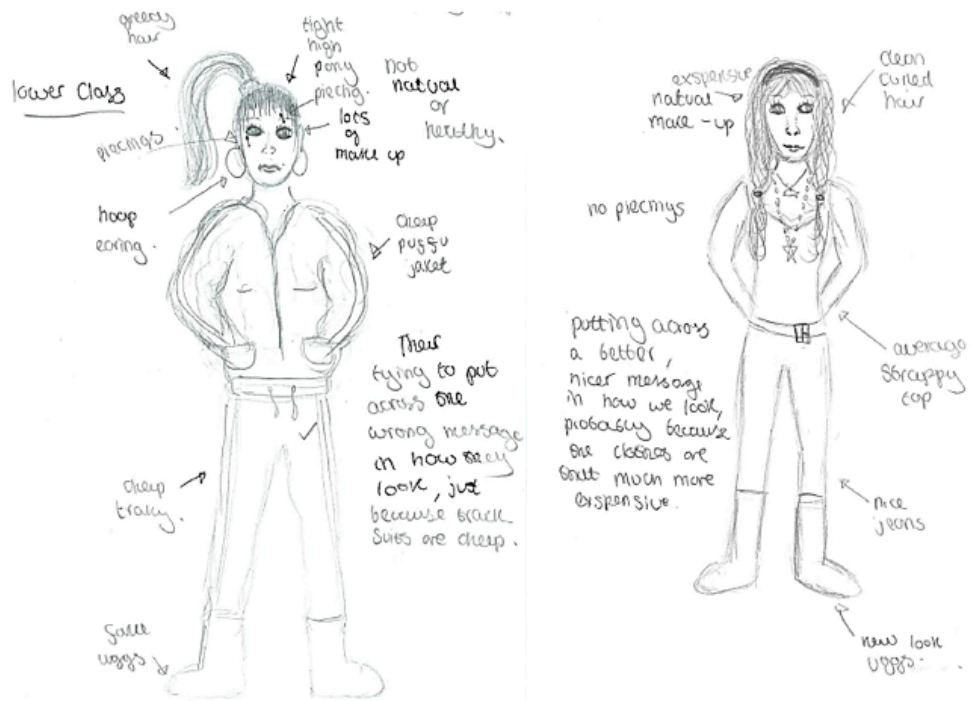 greedy
hair
tight
high
pony
piecing.
not
natural
or
healthy.
lower Class
piecings.
lots
of
make up
hoop
earing.
Cheap
puffy
jaket
Their
trying to put
across the
wrong message
in how they
look, just
because track
Suits are cheap.
cheap
tracky.
fake
uggs
exspensive
natual
make-up
clean
curled
hair
no piecings
putting across
a better,
nicer message
in how we look,
probably because
the clothes are
much more
exspensive.
average
Strappy
top
nice
jeans
new look
uggs.